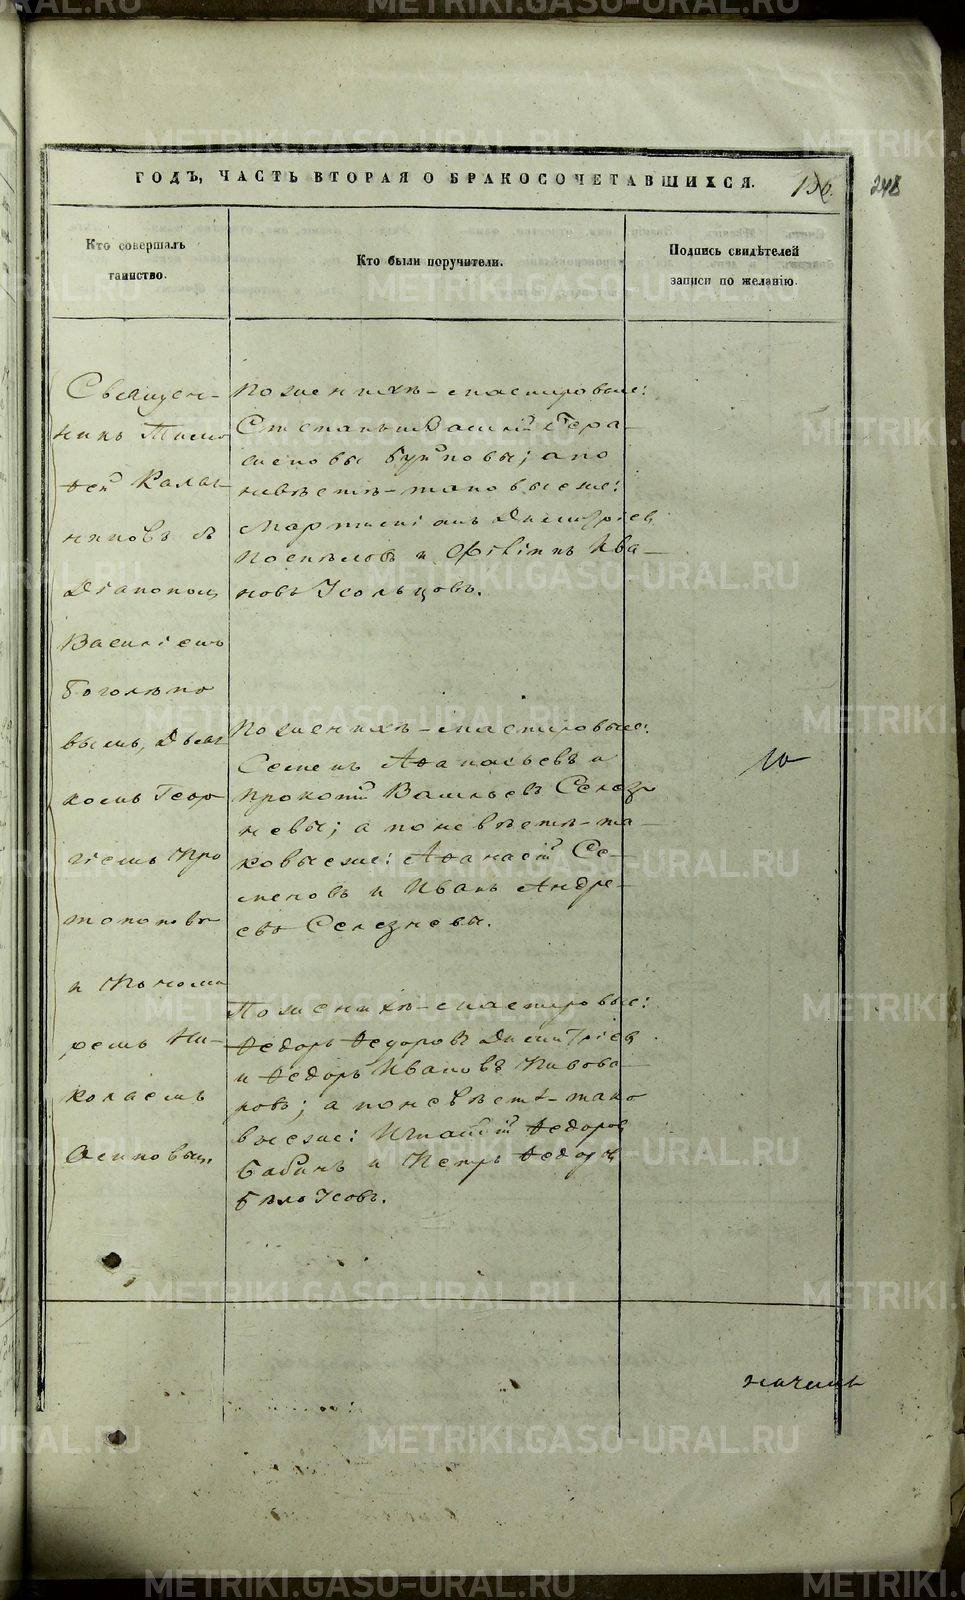 ГОДЪ, ЧАСТЬ ВТОРАЯ О БРАКОСОЧЕТАВШИХСЯ.
156. 248
Кто совершалъ
таинство.
Кто были поручители.
Подпись свидѣтелей
записи по желанію.
Священ-
никъ Тимо
ѳей Калаш
никовъ съ
Діакономъ
Василіемъ
Боголѣпо
вымъ, Дьяч
комъ Геор
гіемъ Про
топоповы
и Понома
ремъ Ни-
колаемъ
Осиповым.
По женихѣ-мастеровые:
Степанъ и Василій Гера-
симовы; а по
невѣстѣ-таковые же:
Мартиніанъ Димитріев
Поспѣловъ и Филиппъ Ива-
новъ Усольцовъ.
По женихѣ-мастеровые:
Семенъ Аѳанасьевъ и
Прокопій Васильевъ Селез
невы; а по невѣстѣ-та-
ковые же: Аѳанасій Се-
меновъ и Иванъ Андре-
евъ Селезневы.
По женихѣ-мастеровые:
Ѳедоръ Ѳедоровъ Димитріев
и Ѳедоръ Ивановъ Пивова-
ровъ; а по невѣстѣ-тако
вые же: Игнатій Ѳедоров
Бабинъ и Петръ Ѳедоров
Бѣлоусовъ.
METRIKI.GASO-URAL.RU